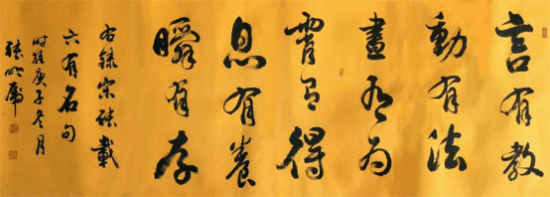 言有教
動有法
晝有為
宵有得
息有養
瞬有存
右錄宋張載
六有名句
時在庚子冬月